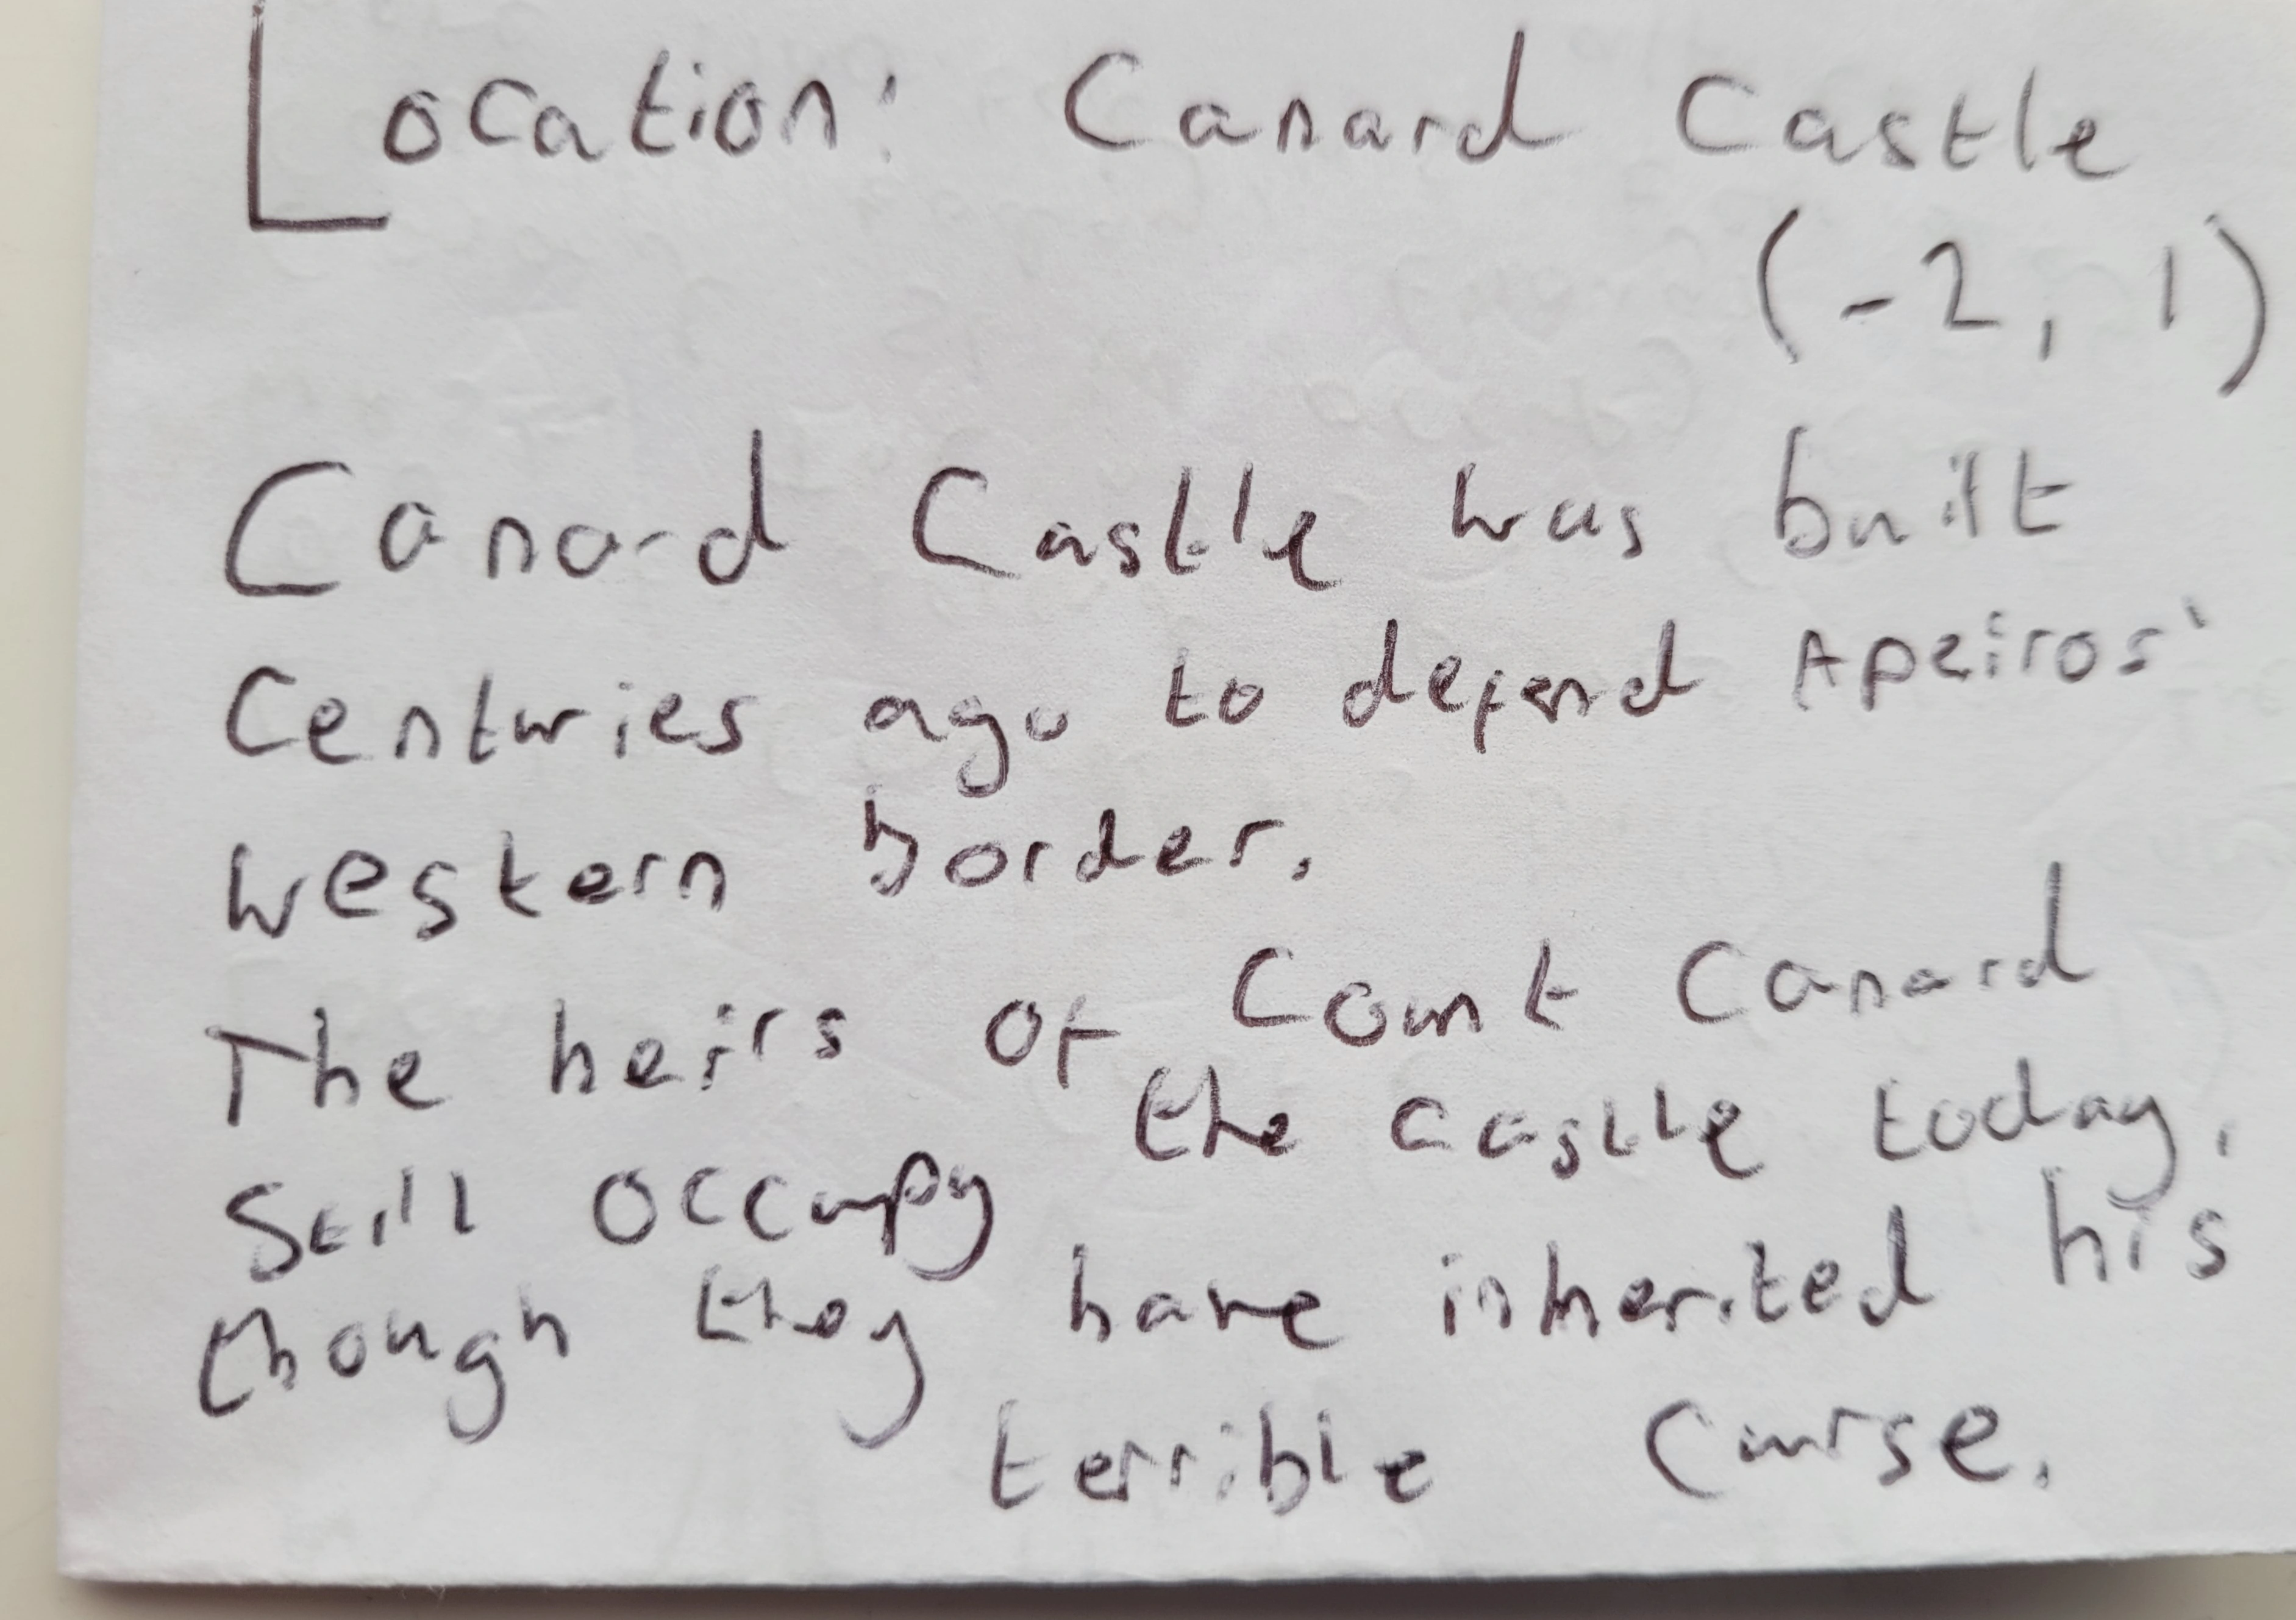 Location: Canard Castle
(-2, 1)
Canard Castle was built
Centuries ago to defend Apeiros'
western border.
The heirs of Count Canard
Still occupy the castle today,
though they have inherited his
terrible curse.